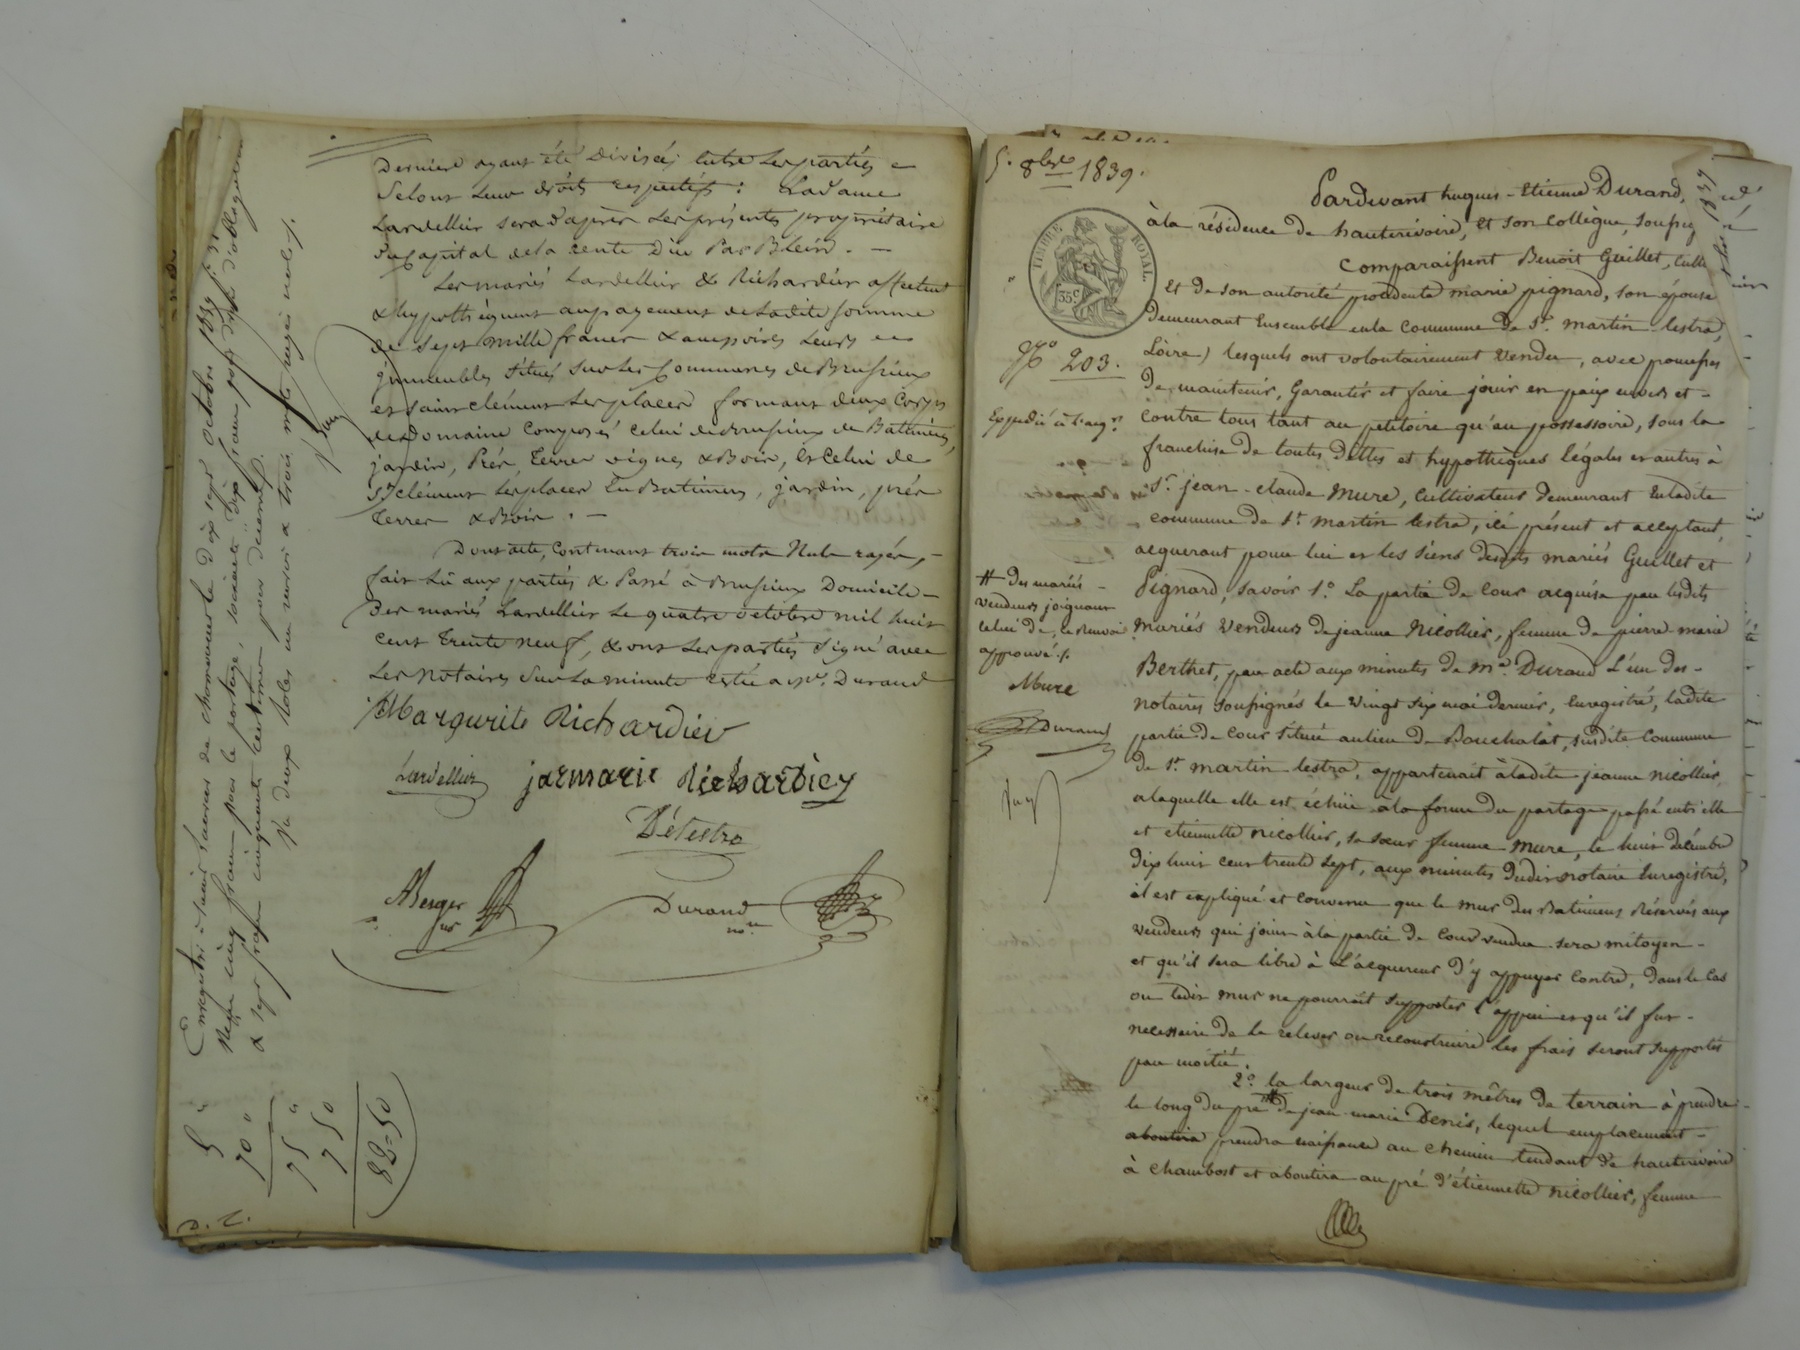 Dernier ayant été divisés entre les parties
Selons leur droits respectifs : La dame
Lardellier sera d'après les présentes propriétaire
du capital de la rente Due Par Blein. —
Les mariés Lardellier & Richardier affectent
& hypothèquent au payement de ladite somme
de sept mille francs & accessoires leurs
immeubles situés sur les communes de Brussieux
et saint clément les places formant deux Corps
de Domaine Composés celui de Brussieux de Batimens,
jardin, Prés, Terres vignes & Bois, et Celui de
St clément les places En Batimens, jardin, prés
Terres & Bois. —
Dont acte, Contenant trois mots Nuls rayés, —
fait Lû aux parties & Passé à Brussieux Domicile —
Des mariés Lardellier Le quatre octobre mil huit
cent trente neuf, & ont les parties signé avec
Les Notaires Sur La minute restée a Me. Durand
Margurite Richardier
Lardellier jarmarie Richardier
Détestra
Berger
nre
Durand
nre
Enregistré à Saint Laurent de Chamousset le dix sept octobre 1839
Reçu cinq francs pour le partage, soixante dix francs pour
& sept francs cinquante centimes pour décime.
deux Roles un renvoi & trois mots rayés nuls.
5 "
70 "
75 "
7 50
82=50
D. C.
5. 8bre 1839.
TIMBRE ROYAL
35c
No 203.
Expédié à l'acqr.
Pardevant hugues-Etienne Durand,
à la résidence de hauterivoire, et son collègue, soussig
Comparaissent Benoit Guillet, Cult
Et de son autorité procédente marie pignard, son épouse
Demeurant Ensemble en la commune de St. martin lestra,
Loire) lesquels ont volontairement vendu, avec promesses
De maintenir, Garantir et faire jouir en paix envers et -
contre tous tant au petitoire qu'au possessoire, sous la
franchise de toutes Dettes et hypothèques légales et autres à
Sr. jean-claude Mure, cultivateur demeurant En ladite
commune de St. martin lestra, ici présent et acceptant,
acquerant pour lui et les siens desdits mariés Guillet et
Pignard, savoir 1.o La partie de cour acquise par lesdits
mariés vendeurs de jeanne Nicollier, femme de pierre marie
Berthet, par acte aux minutes de me. Durand L'un des -
notaires soussignés le vingt six mai dernier, enregistré, ladite
partie de cour située au lieu de Bouchalat, susdite Commune
de St. martin lestra, appartenait à ladite jeanne nicollier,
a laquelle elle est échüe à la forme du partage passé entr'elle
et etiennette nicollier, sa sœur femme mure, le huit décembre
dix huit cent trente sept, aux minutes dudit notaire Enregistré,
il est expliqué et convenu que le mur des Batimens Réservés aux
vendeurs qui joint à la partie de cour vendue sera mitoyen -
et qu'il sera libre à L'acquereur d'y appuyer contre, dans le cas
ou ledit mur ne pourrait supporter l'appui et qu'il fut -
necessaire de le relever ou reconstruire les frais seront supportés
par moitié.
2.o la largeur de trois mètres de terrain à prendre
le long du pré # de jean marie Denis, lequel emplacement -
aboutira prendra naissance au chemin tendant de hauterivoire
à Chambost et aboutira au pré d'étiennette nicollier, femme
# des mariés -
vendeurs joignant
celui de, ce Renvoi
approuvé ./.
Mure
Durand